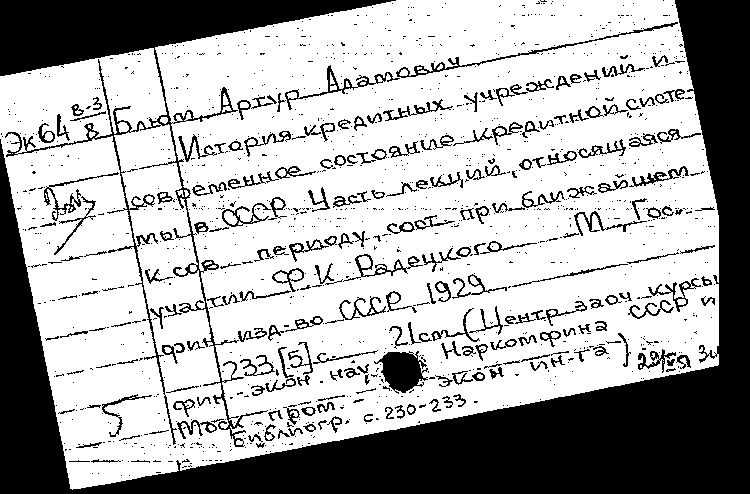 Эк64 В-3/8 Блюм, Артур Адамович
История кредитных учреждений и
современное состояние кредитной систе-
мы в СССР. Часть лекций, относящаяся
к сов. периоду, сост. при ближайшем
участии Ф.К. Радецкого М., Гос.
фин. изд-во СССР, 1929
233, [5] с. 21 см (Центр. заоч. курсы
фин.-экон. наук Наркомфина СССР и
Моск. пром.-экон. ин-та)
Библиогр. с. 230-233.